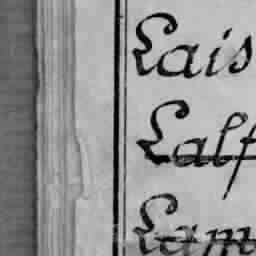 Lais
Lalf
Lam